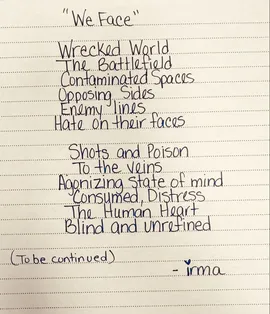 "We Face"
Wrecked World
The Battlefield
Contaminated Spaces
Opposing Sides
Enemy lines
Hate on their faces
Shots and Poison
To the veins
Agonizing state of mind
Consumed, Distress
The Human Heart
Blind and unrefined
(To be continued)
- irma